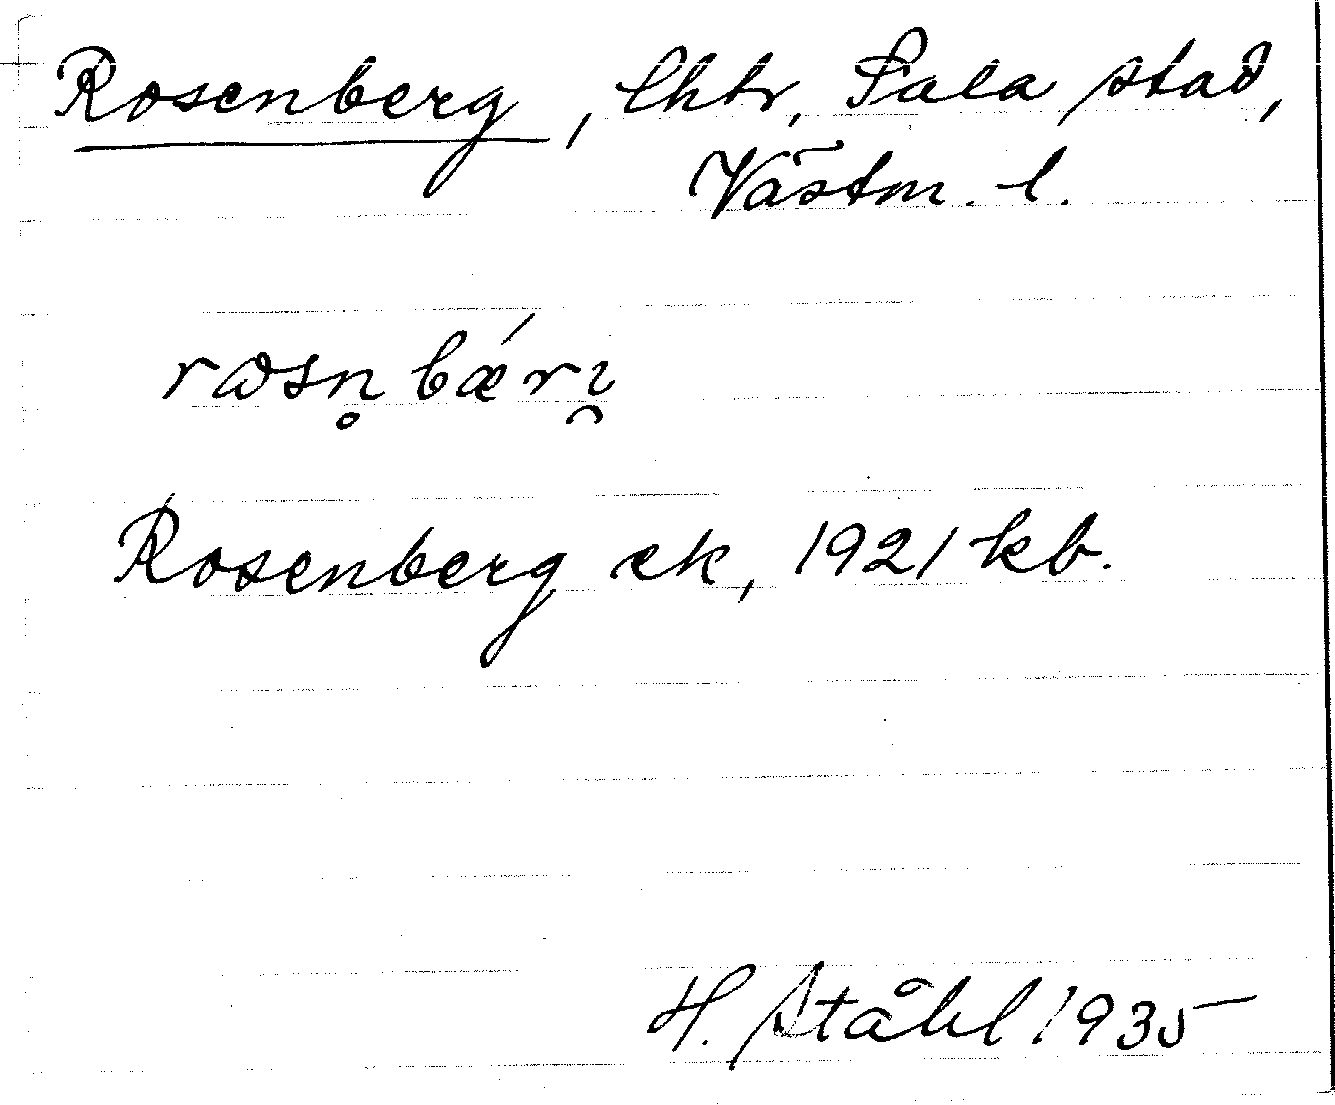 Rosenberg, lhtr, Sala stad,
Västm. l.
rosn̥ bǽri̯
Rosenberg ek, 1921 kb.
H. Ståhl 1935